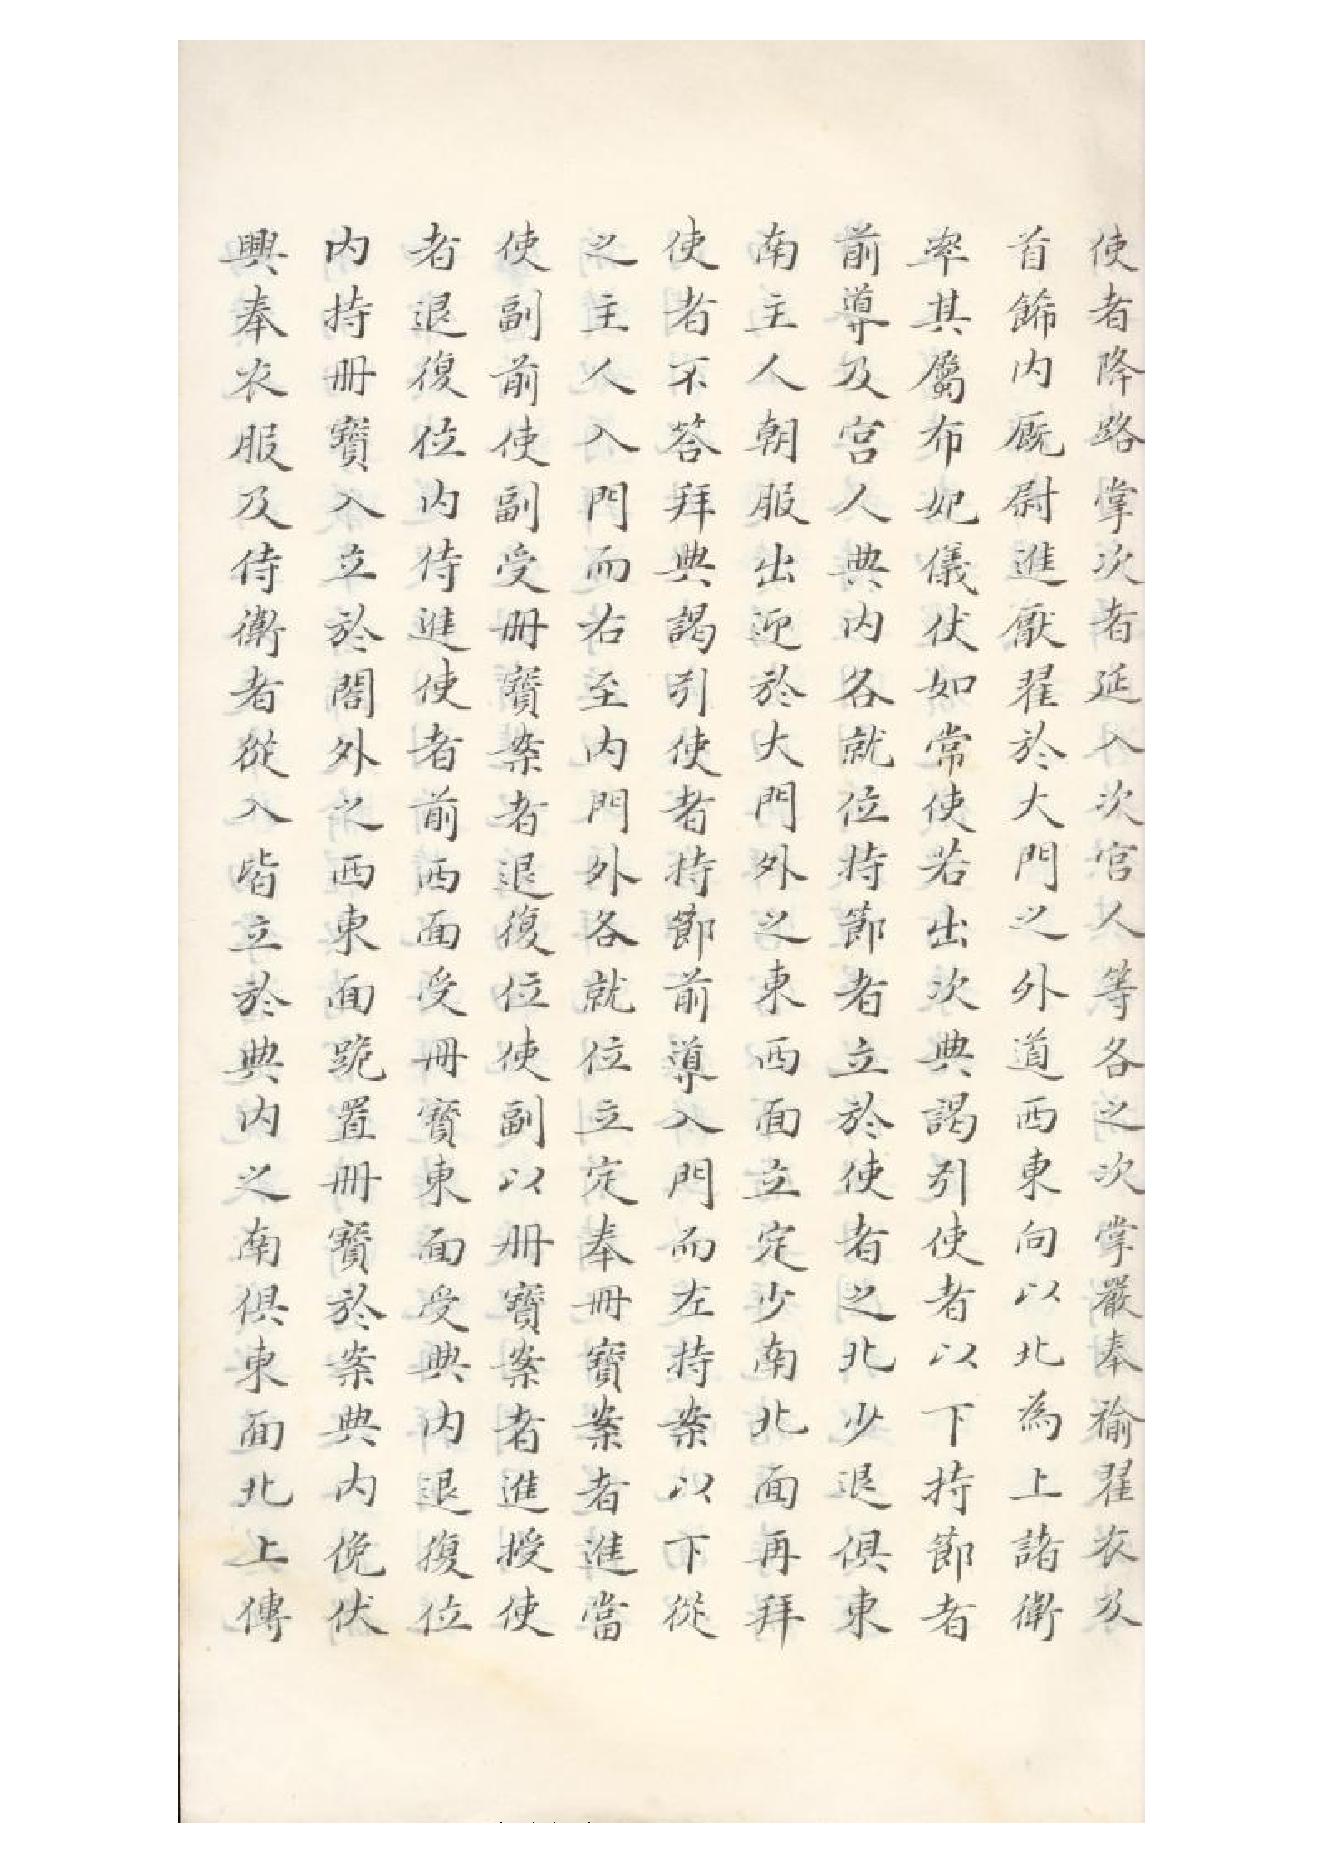 使者降路掌次者延入次宫人等各之次掌嚴奉褕翟衣及
首餙内廐尉進厭翟於大門之外道西東向以北為上諸衛
率其屬布妃儀仗如常使若出次典謁引使者以下持節者
前導及宫人典内各就位持節者立於使者之北少退俱東
南主人朝服出迎於大門外之東西面立定少南北面再拜
使者不答拜典謁引使者持節前導入門而左持案以下從
之主人入門而右至内門外各就位立定奉冊寶案者進當
使副前使副受冊寶案者退復位使副以册寶案者進授使
者退復位内侍進使者前西面受冊寶東面受典内退復位
内持冊寶入立於閤外之西東面跪置冊寶於案典内俛伏
興奉衣服及侍衛者從入皆立於典内之南俱東面北上傳